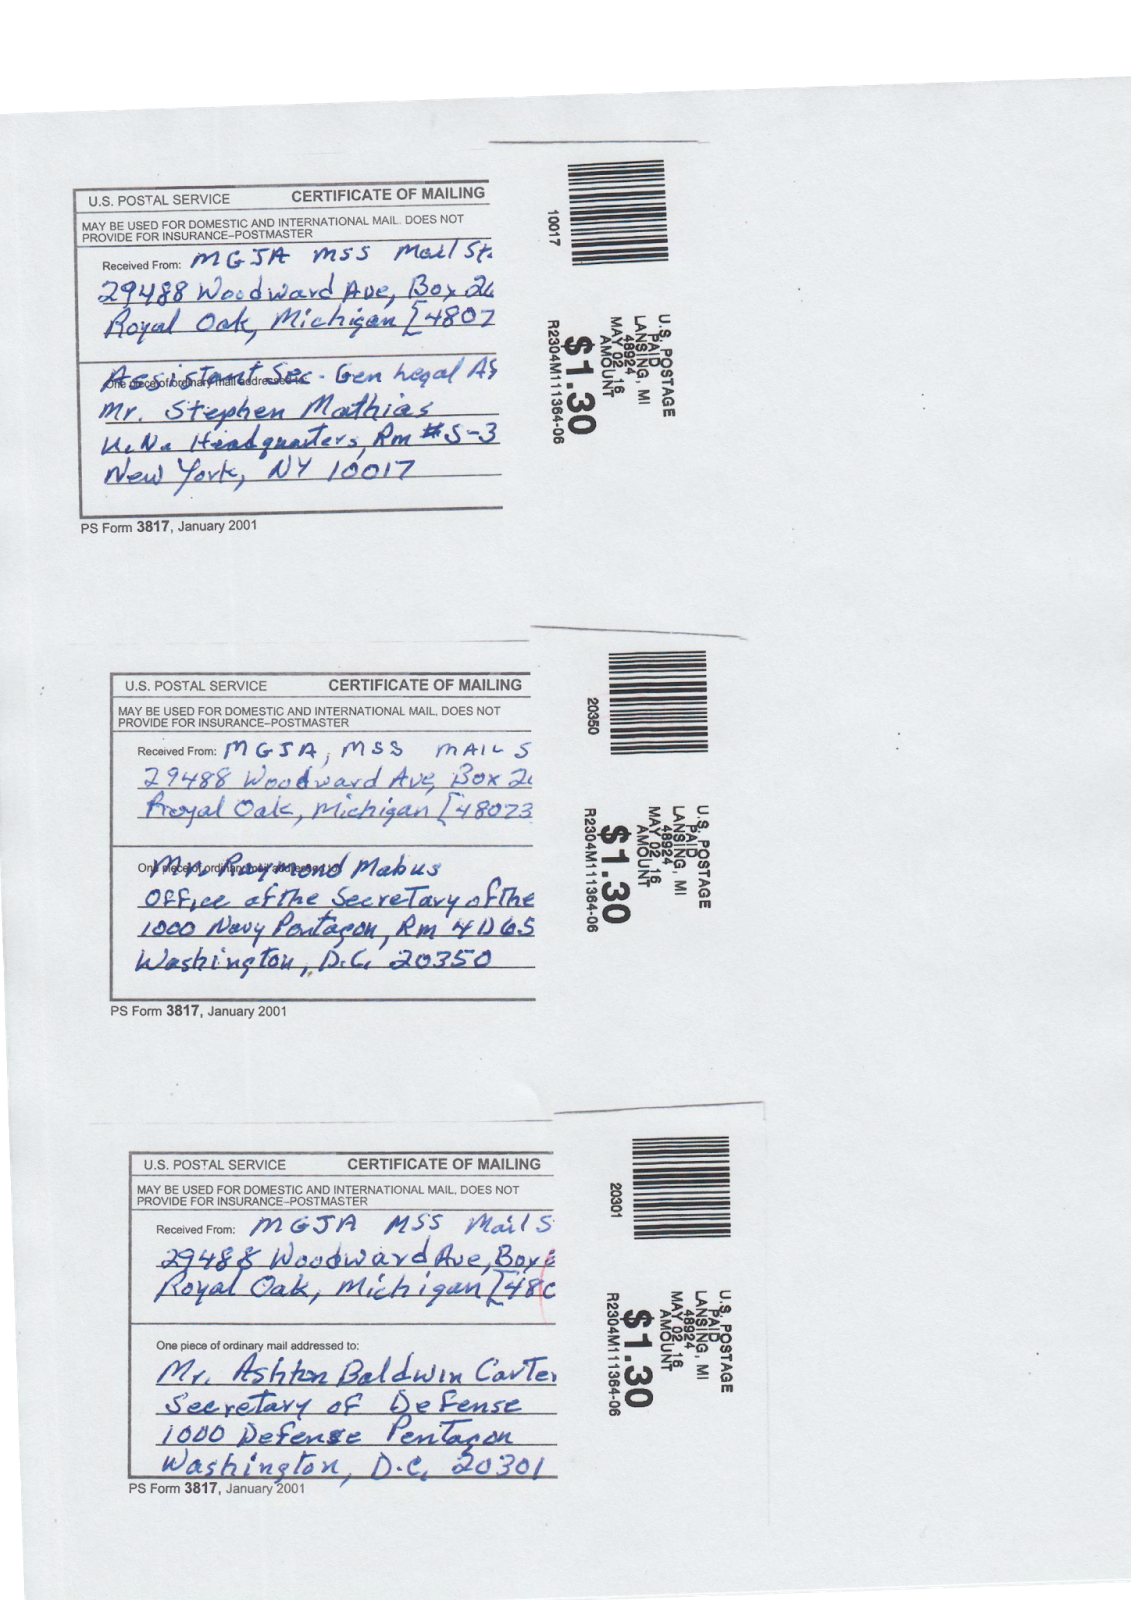 U.S. POSTAL SERVICE CERTIFICATE OF MAILING
MAY BE USED FOR DOMESTIC AND INTERNATIONAL MAIL. DOES NOT
PROVIDE FOR INSURANCE–POSTMASTER
Received From: MGJA MSS Mail St.
29488 Woodward Ave, Box 26
Royal Oak, Michigan [4807
One piece of ordinary mail addressed to:
Assistant Sec. Gen Legal As
Mr. Stephen Mathias
U.N. Headquarters, Rm #S-3
New York, NY 10017
PS Form 3817, January 2001
10017
U.S. POSTAGE
PAID
LANSING, MI
48924
MAY 02, 16
AMOUNT
$1.30
R2304M111364-06
U.S. POSTAL SERVICE CERTIFICATE OF MAILING
MAY BE USED FOR DOMESTIC AND INTERNATIONAL MAIL, DOES NOT
PROVIDE FOR INSURANCE–POSTMASTER
Received From: MGJA, MSS MAIL S
29488 Woodward Ave, Box 26
Royal Oak, Michigan [48073
One piece of ordinary mail addressed to:
Mr. Raymond Mabus
Office of the Secretary of the
1000 Navy Pentagon, Rm 4D65
Washington, D.C. 20350
PS Form 3817, January 2001
20350
U.S. POSTAGE
PAID
LANSING, MI
48924
MAY 02, 16
AMOUNT
$1.30
R2304M111364-06
U.S. POSTAL SERVICE CERTIFICATE OF MAILING
MAY BE USED FOR DOMESTIC AND INTERNATIONAL MAIL, DOES NOT
PROVIDE FOR INSURANCE–POSTMASTER
Received From: MGJA MSS Mail S
29488 Woodward Ave, Box
Royal Oak, Michigan [480
One piece of ordinary mail addressed to:
Mr. Ashton Baldwin Carter
Secretary of Defense
1000 Defense Pentagon
Washington, D.C. 20301
PS Form 3817, January 2001
20301
U.S. POSTAGE
PAID
LANSING, MI
48924
MAY 02, 16
AMOUNT
$1.30
R2304M111364-06